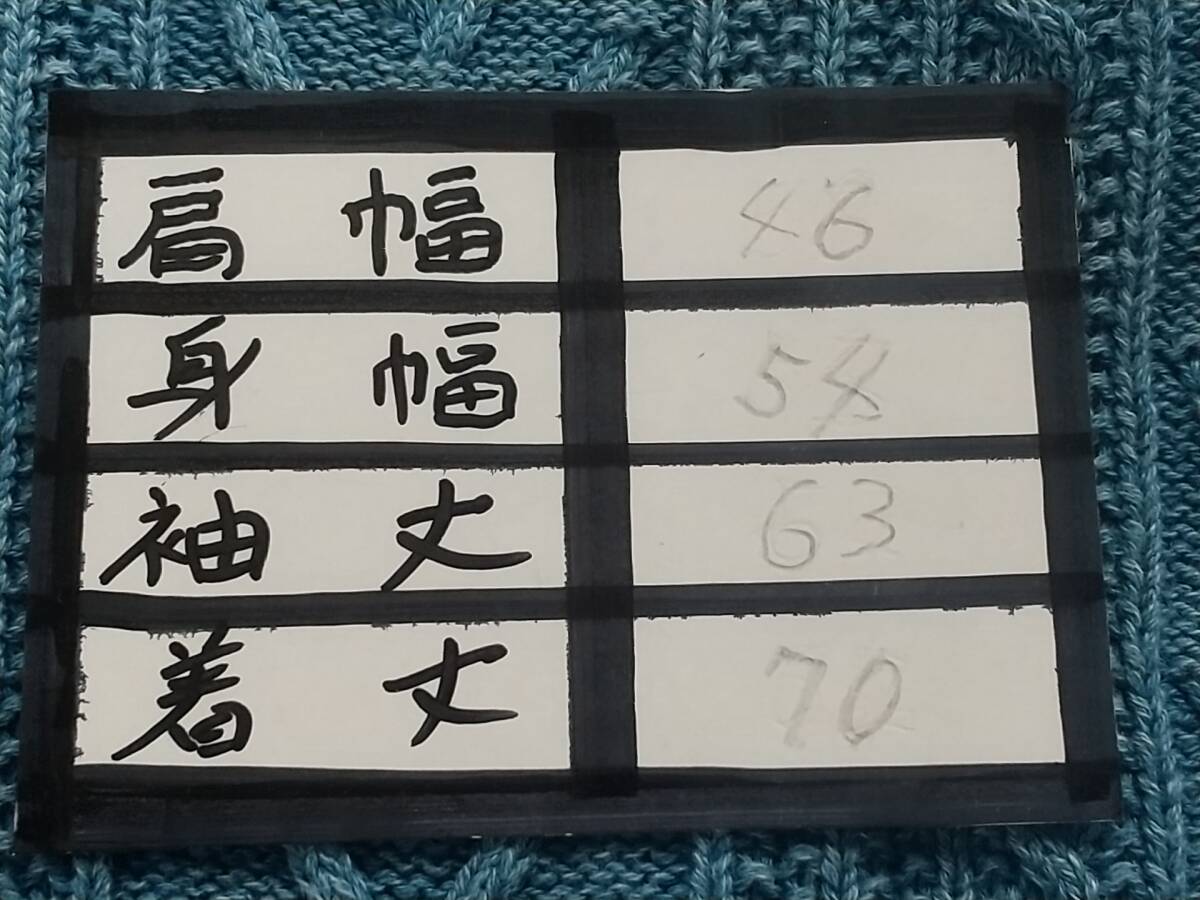 肩幅 46
身幅 54
袖丈 63
着丈 70